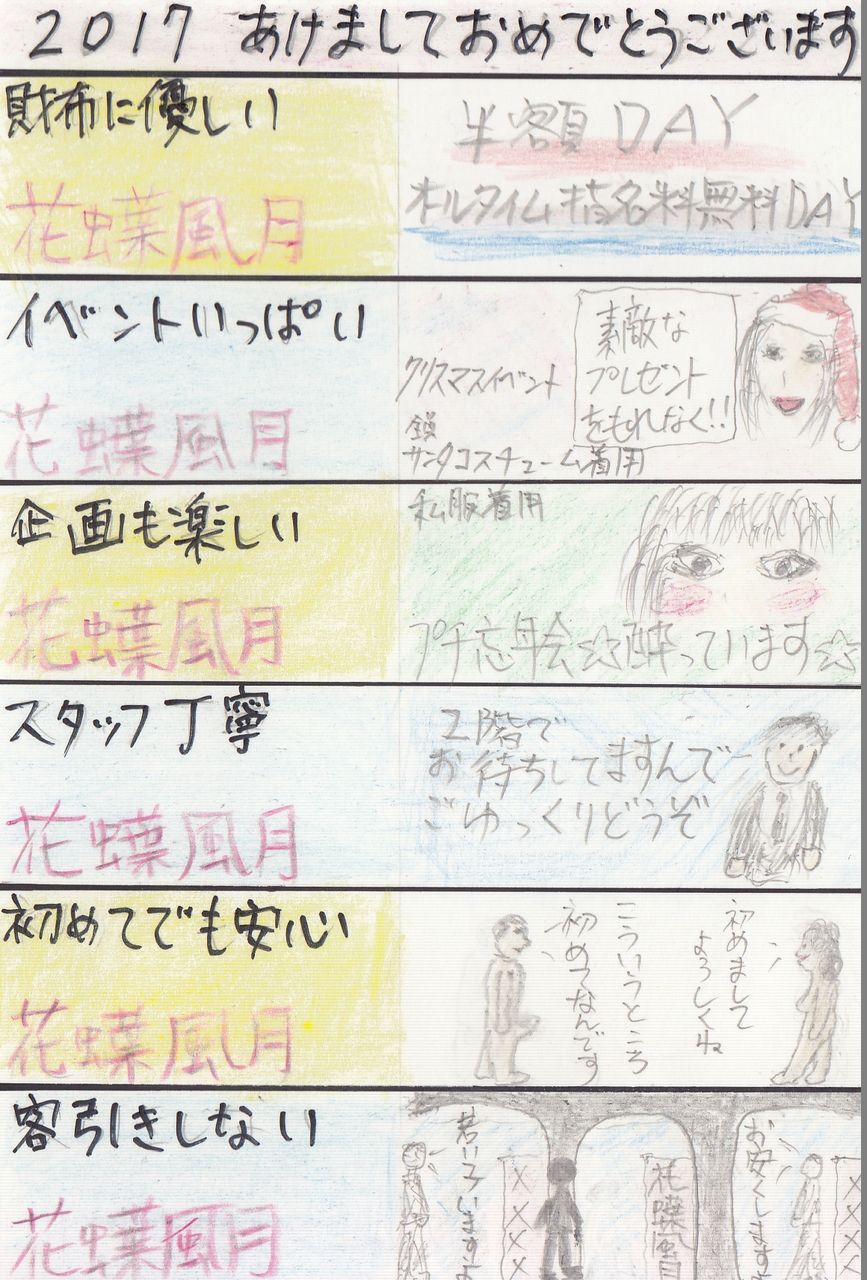 2017 あけましておめでとうございます
財布に優しい
花蝶風月
半額DAY
オルタイム指名料無料DAY
イベントいっぱい
花蝶風月
クリスマスイベント
サンタコスチューム着用
素敵な
プレゼント
をもれなく!!
企画も楽しい
花蝶風月
私服着用
プチ忘年会☆酔っています☆
スタッフ丁寧
花蝶風月
2階で
お待ちしてますんで
ごゆっくりどうぞ
初めてでも安心
花蝶風月
初めまして
よろしくね
こういうところ
初めてなんです
客引きしない
花蝶風月
お安くします
××××
花蝶風月
××××
若い子いますよ